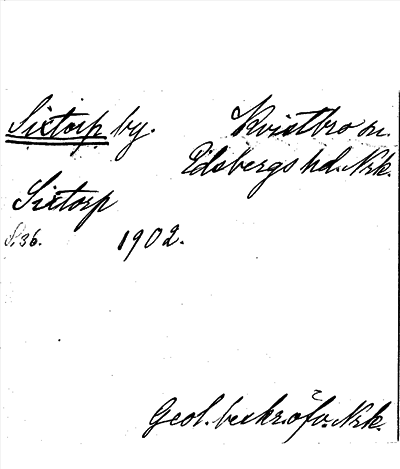 Sixtorp by. Kvistbro sn.
Edsbergs hd. Nrk.
Sixtorp
S. 36. 1902.
Geol. beskr. öfv. Nrk.